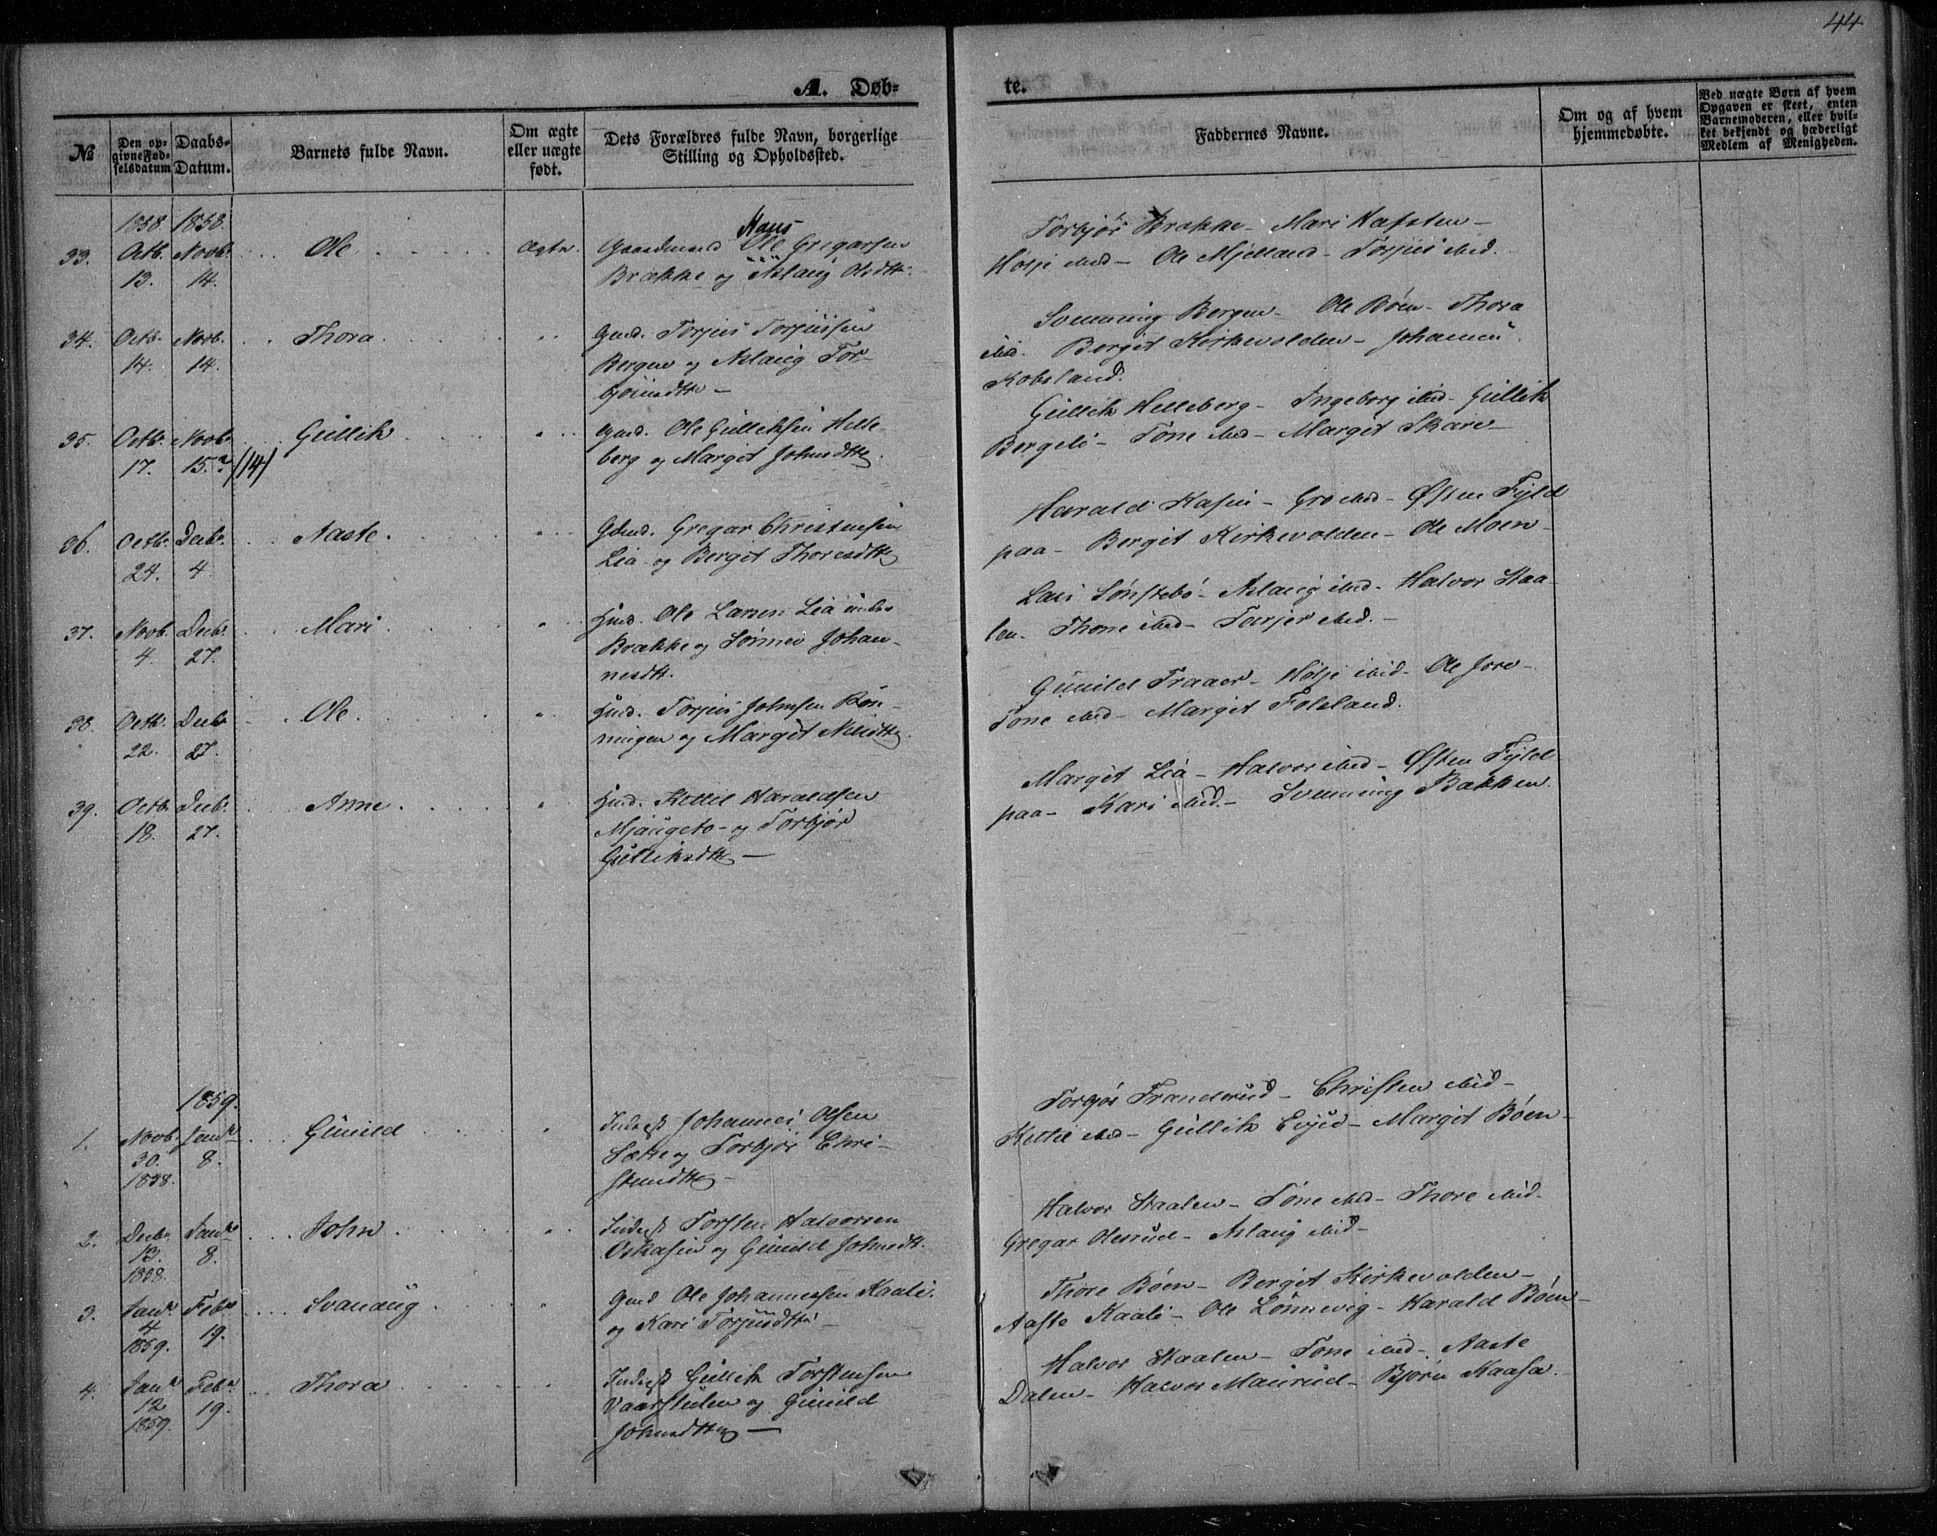 44
A. Døb-
te.
№
Den op-
givne Fød-
selsdatum
Daabs-
Datum.
Barnets fulde Navn.
Om ægte
eller uægte
født.
Dets Forældres fulde Navn, borgerlige
Stilling og Opholdssted.
Faddernes Navne.
Om og af hvem
hjemmedøbte.
Ved uægte Børn af hvem
Opgaven er skeet, enten
Barnemoderen, eller hvil-
ket bekjendt og hæderligt
Medlem af Menigheden.
1858. 1858.
33. Octb. 13. Novb. 14. Ole Ægte.
Hans
Gaardmand Ole Gregarsen
Brække og Aslaug Olsdtr.
Torbjør Brække - Mari Hafsten -
Holje ibid - Ole Mjelland - Torjus ibid.
34. Octb. 14. Novb. 14. Thora
Gmd. Torjus Torjussen
Bergen og Aslaug Tor-
bjørnsdtr -
Svenning Bergen - Ole Bøen - Thora
ibid. Bergit Kirkevolden - Johannes
Kobsland.
35. Octb. 17. Novb. 15.? /14/ Gullik
Gmd. Ole Gulliksen Helle-
berg og Margit Johnsdtr.
Gullik Helleberg - Ingeborg ibid - Gullik
Bergeli - Tone ibid - Margit Skare -
36. Octb. 24. Decb. 4 Aaste
Gmd. Gregar Christensen
Lia og Bergit Thoresdtr
Harald Kasin - Gro ibid - Østen Fjeld
paa - Bergit Kirkevolden - Ole Moen -
37. Novb. 4. Decb. 27. Mari
Hmd. Ole Larsen Lia under
Brække og Sønnev Johan-
nesdtr.
Lars Sønstebø - Aslaug ibid - Halvor Haa-
len - Thone ibid - Tarjer ibid. -
38. Octb. 22. Decb. 27. Ole
Hmd. Torjus Johnsen Røn-
ningen og Margit Nilsdtr.
Gunild Traaer - Holje ibid - Ole Jore -
Tone ibid - Margit Folsland.
39. Octb. 18. Decb. 27. Anne
Hmd. Kettil Haraldsen
Mjaugeto - og Torbjør
Gulliksdtr -
Margit Lia - Halvor ibid - Østen Fjeld
paa - Kari ibid. - Svenning Bakken.
1859.
1. Novb. 30. 1858. Janr. 8. Gunild
Inderst Johannes Olsen
Sætte og Torbjør Chri-
stensdtr -
Torbjør Frandsrud - Christen ibid -
Kettil ibid - Gullik Eisjed - Margit Bøen -
2. Decbr. 13. 1858. Janr. 8. John
Inderst Torsten Halvorsen
Oskasin og Gunild Johnsdtr.
Halvor Haalen - Tone ibid - Thore ibid -
Gregar Olesrud - Aslaug ibid -
3. Janr. 4 1859. Febr. 19. Svanaug
Gmd Ole Johannessen Kaali
og Kari Torjusdtr -
Thore Bøen - Bergit Kirkevolden -
Aaste Kaali - Ole Lønnevig - Harald Bøen -
4. Janr. 12 1859. Febr. 19. Thora
Inderst Gullik Torstensen
Vaarstulen og Gunild
Johnsdtr -
Halvor Haalen - Tone ibid - Aaste
Dalen - Halvor Maurud - Bjørn Kaasa.